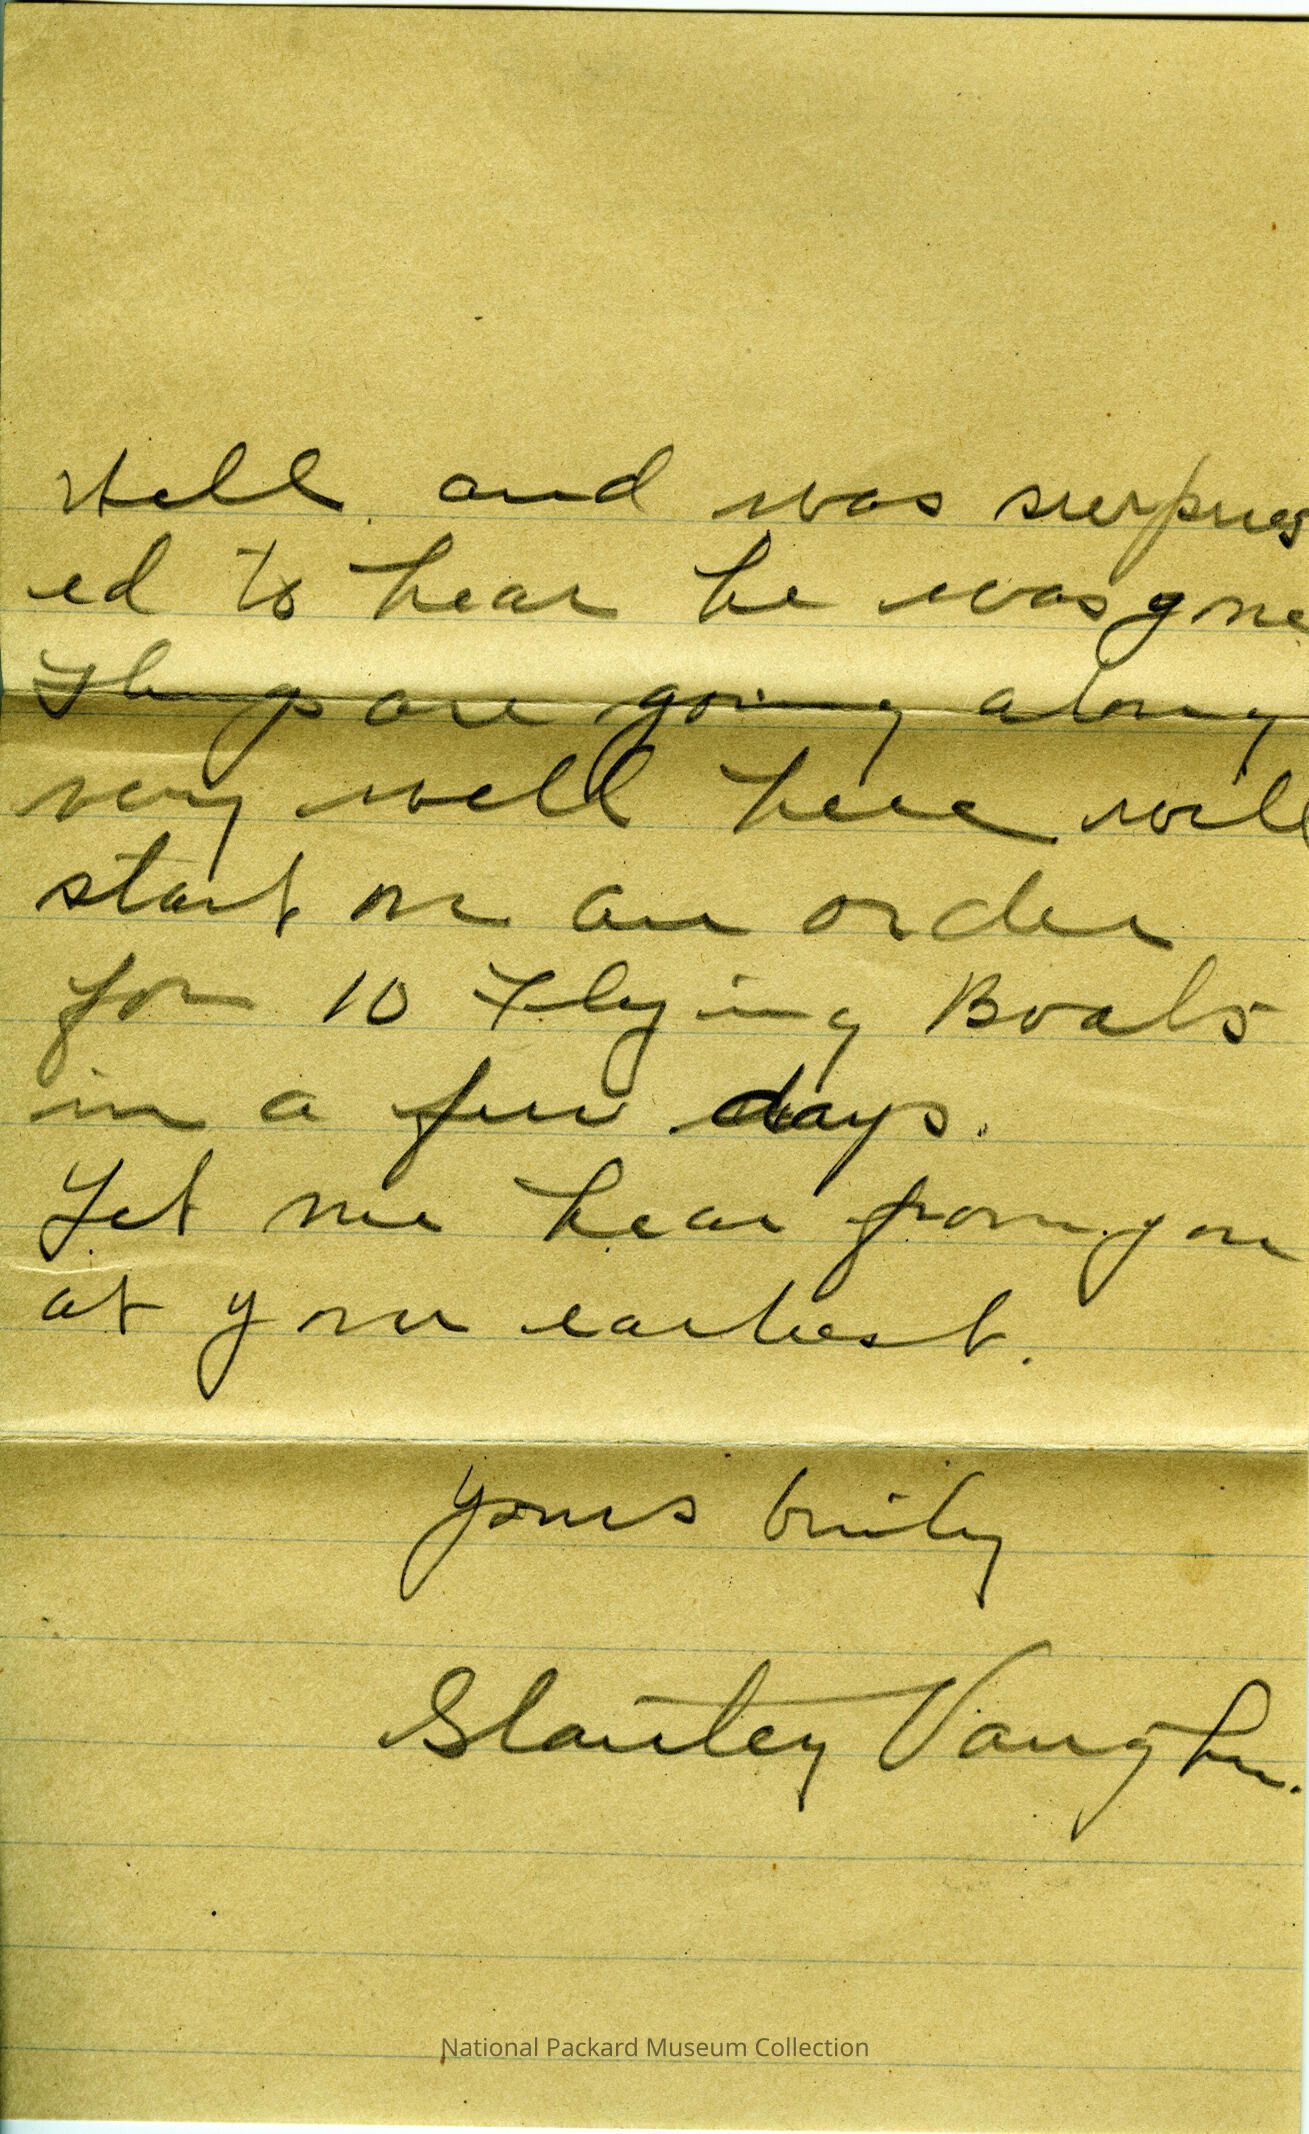 Hall and was surpries
ed to hear he was gone
Things are going along
very well here will
start on an order
for 10 Flying Boats
in a few days.
Let me hear from you
at your earliest.
Yours truly
Stanley Vaughn.
National Packard Museum Collection